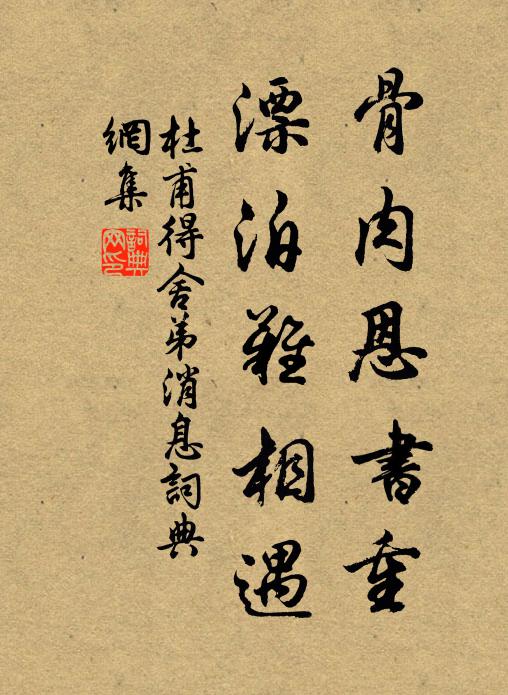 骨肉恩書重
漂泊難相遇
杜甫得舍弟消息詞典
網集
詞典
网印